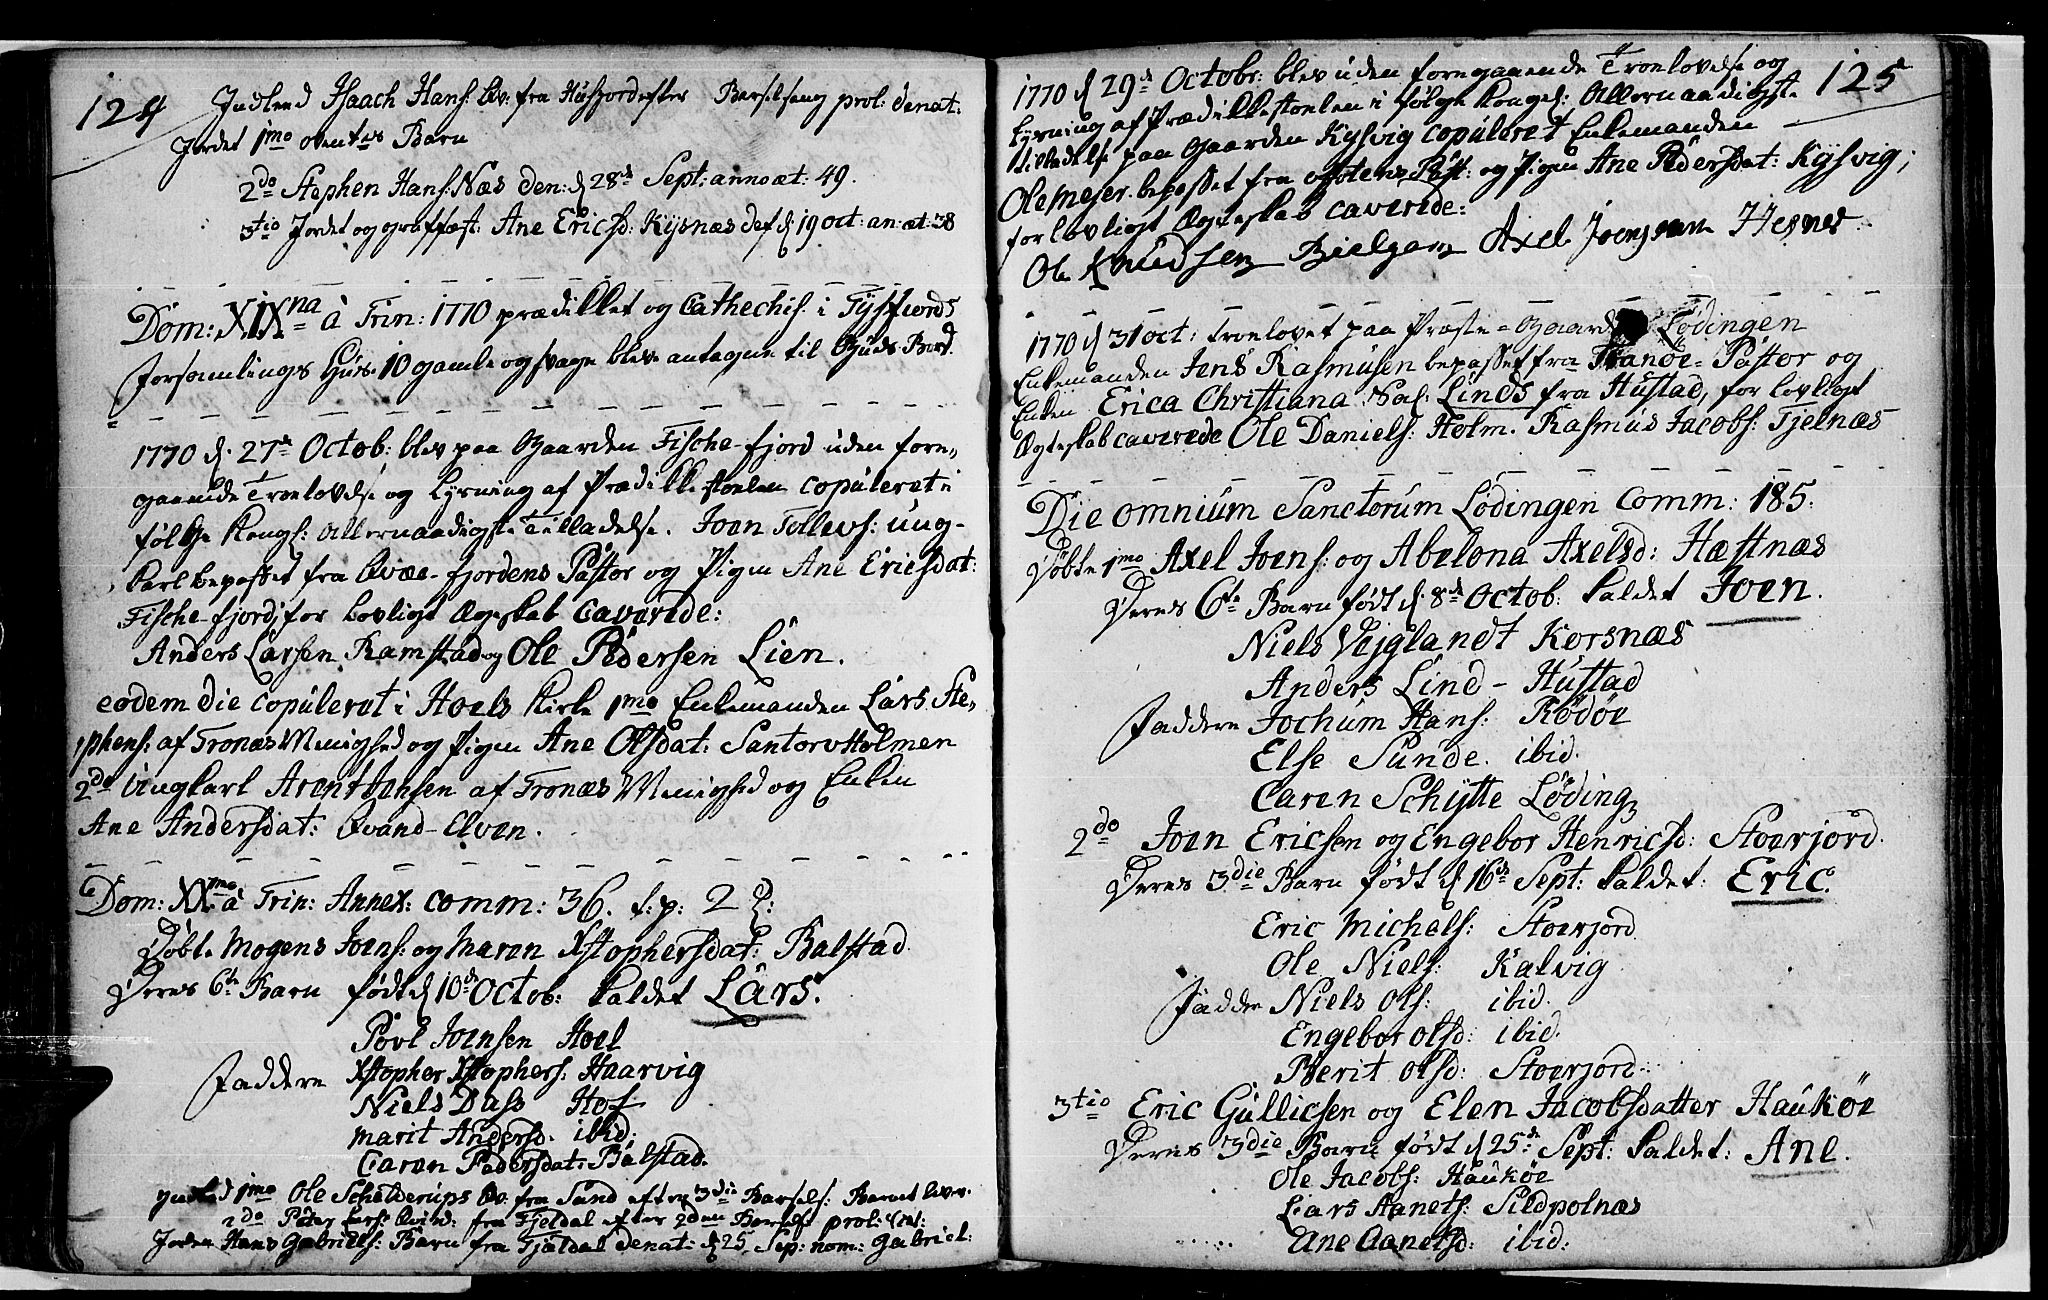 124
Indleed Isaach Hans: Qv: fra Husjord efter Barselseng prol: denat:
Jordet 1mo Barn
2do Stephen Hans: Næs den: d 28de Sept: anno æt: 49.
3tio Jordet og graffæst: Ane Ericsd: Kysnæs def d 19 oct: an: æt: 38
Dom: XIXna à Trin: 1770 prædikket og Cathechis: i Tysfiords
Forsamlings Huus. 10 gamle og svage blev antagne til Guds Bord.
1770 d. 27de Octob: blev paa Gaarden Fische-fjord uden fore-
gaaende Troelovelse og Lysning af Prædikkestoelen copuleret i
følge Kongl: allernaadigste Tilladelse. Joen Tollevs: ung-
karl bepasset fra Qvæe-fjordens Pastor og Pigen Ane Ericsdat:
Fische-fjord, for lovligt Ægteskab caverede:
Anders Larsen Ramstad og Ole Pedersen Lien.
eodem die copuleret i Hoels Kirke 1mo Enkemanden Lars Ste-
phens: af Tronæs Menighed og Pigen Ane Olsdat: SantorvHolmen
2do Ungkarl Arent Jensen af Tronæs Menighed og Enken
Ane Andersdat: Qvand-Elven.
Dom: XXmo à Trin: Annex: comm: 36. s: p: 2
Døbte Mogens Joens: og Maren Xstophersdat: Balstad
Deres 6te Barn født d 10de Octob: kaldet Lars.
Povl Joensen Hoel
Faddere Xstopher Xstophers: Haarvig
Niels Dass Hof
Marit Andersd. ibid:
Caren Pedersdat: Balstad.
Indleed 1mo Ole Schelderups Qv: fra Sund efter 3die Barsels: Barnet lever.
2do Peter Lars: Qvind: fra Fjeldal efter 2den Barsels: prol:
Jorden Hans Gabriels: Barn fra Fjeldal denat: d 25 Sep: nom: Gabriel:
125
1770 d 29de Octobr: blev uden foregaaende Troelovelse og
Lysning af Prædikkestoelen i følge Kongel: Allernaadigste
tilladelse paa Gaarden Kysvig copuleret Enkemanden
Ole Mejer bepasset fra Ofotens Past: og Pigen Ane Pedersdat: Kysvig;
for lovligt Ægteskab caverede:
Ole Knudsen Axel Joensøn Hesnes
1770 d 31 oct: Troelovet paa Præste-Gaarden Lødingen
Enkemanden Jens Rasmusen bepasset fra Tranøe-Pastor og
Enken Erica Christiana Sal: Linds fra Hustad, for lovligt
Ægteskab caverede Ole Daniels: Holm. Rasmus Jacobs: Tjelnæs
Die omnium Sanctorum Lødingen Comm: 185.
Døbte 1mo Axel Joens: og Abelona Axelsd: Hæstnæs
Deres 6te Barn født d. 8de Octob: kaldet Joen.
Niels Vejglandt Korsnæs
Anders Lind - Hustad
Faddere Jochum Hans: Rødøe
Else Sunde. ibid.
Caren Schytte Løding
2do Joen Ericsen og Engebor Henricsd: Stoerjord.
Deres 3die Barn født d 16de Sept: kaldet: Eric.
Eric Michels: Stoerjord
Ole Niels: Kalvig
Faddere Niels Ols: ibid.
Engebor Olsd: ibid.
Berit Olsd: Stoerjord:
3tio Eric Gullicsen og Elen Jacobsdatter Haukøe
Deres 3die Barn født d 25de Sept: kaldet: Ane.
Ole Jacobs: Haukøe
Lars Aanets: Sildpolnæs
Ane Aanetsd: ibid: